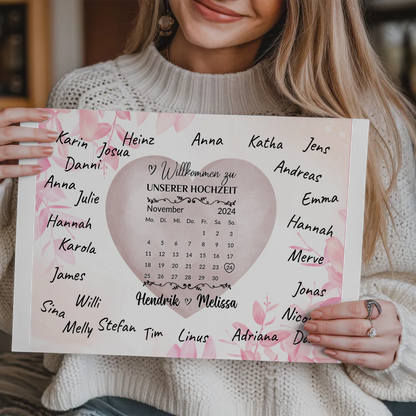 Karin
Heinz
Josua
Anna
Katha
Jens
Danni
Andreas
Anna
Julie
Emma
Hannah
Hannah
Karola
Merve
James
Jonas
Willi
Sina
Melly
Stefan
Tim
Linus
Adriana
Willkommen zu
UNSERER HOCHZEIT
November 2024
Mo. Di. Mi. Do. Fr. Sa. So.
1 2 3
4 5 6 7 8 9 10
11 12 13 14 15 16 17
18 19 20 21 22 23 24
25 26 27 28 29 30
Hendrik Melissa